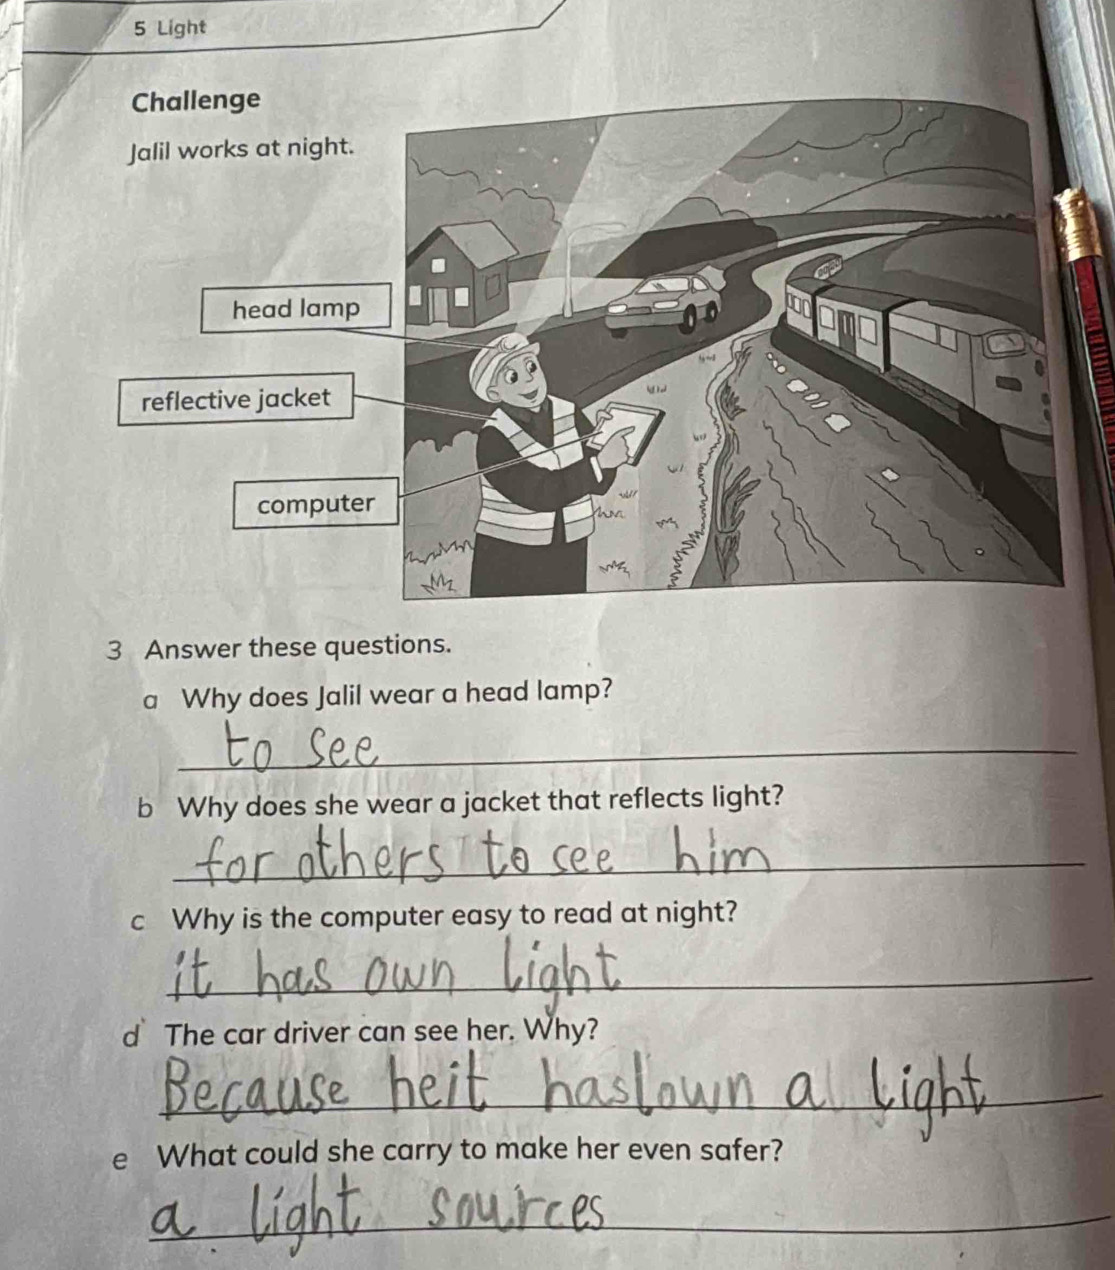 5 Light
Challenge
Jalil works at night.
head lamp
reflective jacket
computer
3 Answer these questions.
a Why does Jalil wear a head lamp?
to see
b Why does she wear a jacket that reflects light?
for others to see him
c Why is the computer easy to read at night?
it has own light
d The car driver can see her. Why?
Because heit has own a light
e What could she carry to make her even safer?
a light sources